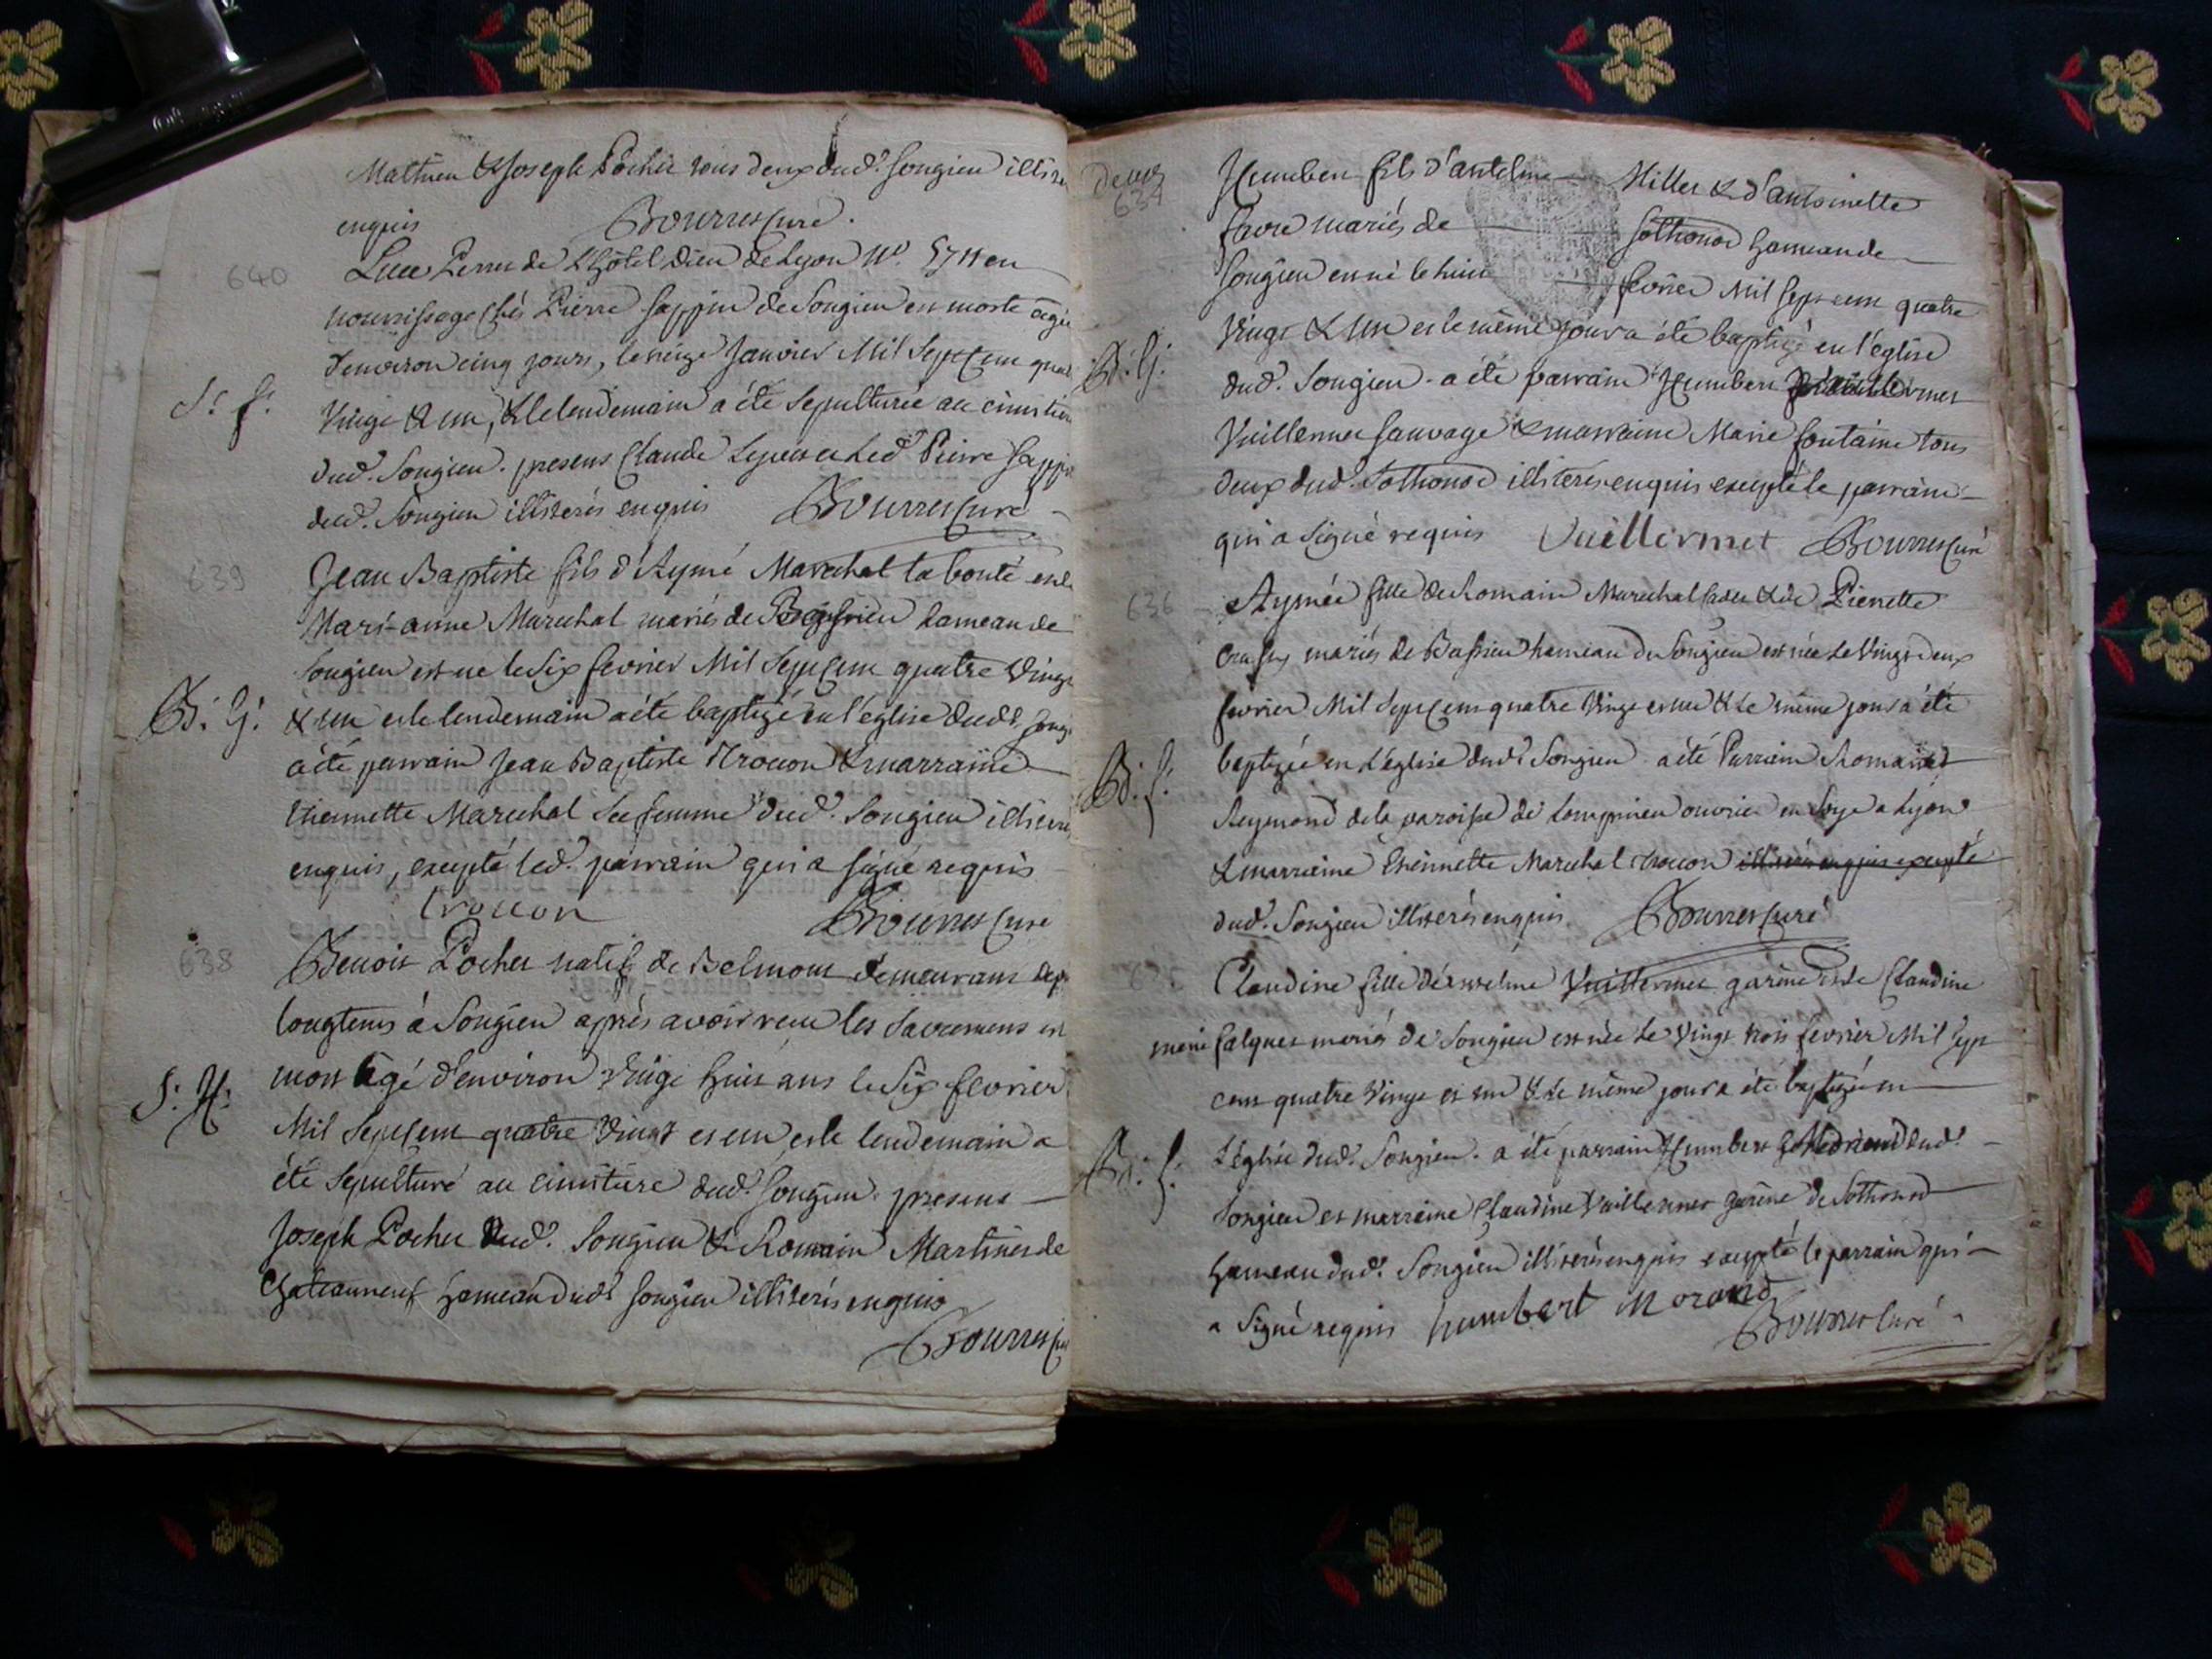 Mathieu & Joseph Pochet tous deux dud. Songieu illiter
enquis Bourret Curé.
640
Luce Perru de L'hôtel Dieu de Lyon N°. 57 en
nourrissage chés Pierre Sappin de Songieu est morte agée
d'environ cinq jours, le seize Janvier Mil Sept Cent quat
S. f.
Vingt & un, & le lendemain a été Sepulturée au cimitiere
dud. Songieu. presens Claude et Led. Pierre Sappin
dud. Songieu illiterés enquis Bourret Curé
639
Jean Baptiste fils d'Aymé Marechal la bonté et de
Mari-anne Marechal mariés de Bassieu hameau de
Songieu est né le Six fevrier Mil Sept Cent quatre Vingt
B. G.
& un et le lendemain a été baptizé en l'église dud. Song
a été parrain Jean Baptiste Trocon & marraine
thiennette Marechal Sa femme dud. Songieu illiteré
enquis, excepté led. parrain qui a signé requis
trocon Bourret Curé
638
Benoit Pochet natif de Belmont demeurant dep
longtems à Songieu après avoir reçu les Sacremens est
mort agé d'environ Vingt huit ans le Six fevrier
S. H.
Mil Sept Cent quatre Vingt et un et le lendemain a
été Sepulturé au cimitiere dud. Songieu. presens
Joseph Pochet dud. Songieu & Romain Martinet de
Chateauneuf hameau dud. Songieu illiterés enquis
Bourret Curé
637
Humbert fils d'antelme Millet & d'antoinette
favre mariés de Sothonod hameau de
Songieu est né le huit fevrier Mil Sept cent quatre
Vingt & un et le même jour a été baptizé en l'église
B. G.
dud. Songieu. a été parrain Humbert
Vuillermet Sauvage & marraine Marie fontaine tous
deux dud. Sothonod illiterés enquis excepté le parrain
qui a Signé requis Vuillermet Bourret Curé
636
Aymée fille de Romain Marechal cadet & de Pierrette
mariés de Bassieu hameau de Songieu est née Le Vingt deux
fevrier Mil Sept Cent quatre Vingt et un & Le même jour a été
B. f.
baptizée en L'église dud. Songieu. a été Parrain Romain
Reymond de la paroisse de Lompnieu ouvrier en Soye a Lyon
& marraine thiennette Marechal trocon illiterés enquis excepté
dud. Songieu illiterés enquis. Bourret Curé
Claudine fille d'anthelme Vuillermet garine et de Claudine
falquet mariés de Songieu est née Le Vingt trois fevrier Mil Sept
cent quatre Vingt et un & Le même jour a été baptizée en
B. f.
L'église dud. Songieu. a été parrain Humbert Morand dud.
Songieu et marraine Claudine Vuillermet garine de Sothonod
hameau dud. Songieu illiterés enquis excepté le parrain qui
a Signé requis humbert Morand Bourret Curé